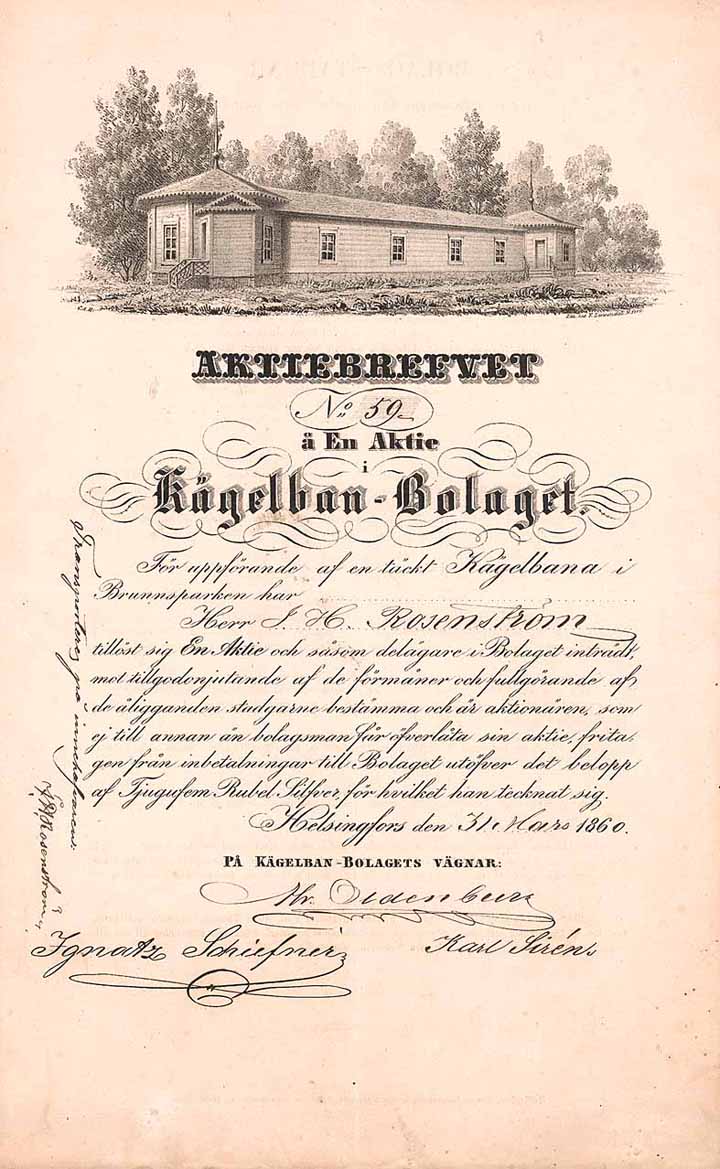 AKTIEBREFVET
No 59
å En Aktie
i
Kägelban-Bolaget.
För uppförande af en täckt Kägelbana i
Brunnsparken har
Herr J. H. Rosenström
tillöst sig En Aktie och såsom delägare i Bolaget inträdt,
mot tillgodonjutande af de förmåner och fullgörande af
de åligganden stadgarne bestämma och är aktionären, som
ej till annan än bolagsman får öfverlåta sin aktie, frita-
gen från inbetalningar till Bolaget utöfver det belopp
af Tjugufem Rubel Silfver för hvilket han tecknat sig.
Helsingfors den 31 Mars 1860.
PÅ KÄGELBAN-BOLAGETS VÄGNAR:
Ignatz Schiefner
Karl Sirén
Transporteras på innehafvaren
J H Rosenström